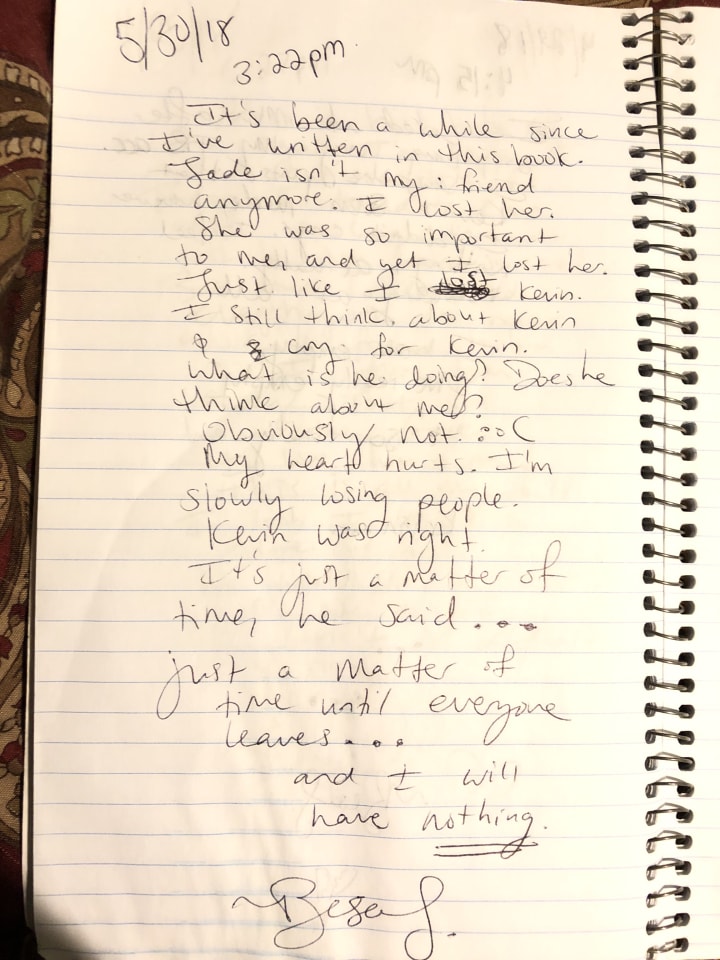 5/30/18
3:22pm.
It's been a while since
I've written in this book.
Jade isn't my friend
anymore. I lost her.
She was so important
to me, and yet I lost her.
Just like I lost Kevin.
I still think about Kevin
& cry for Kevin.
What is he doing? Does he
think about me?
Obviously not. :'(
My heart hurts. I'm
slowly losing people.
Kevin was right.
It's just a matter of
time, he said...
just a matter of
time until everyone
leaves...
and I will
have nothing.